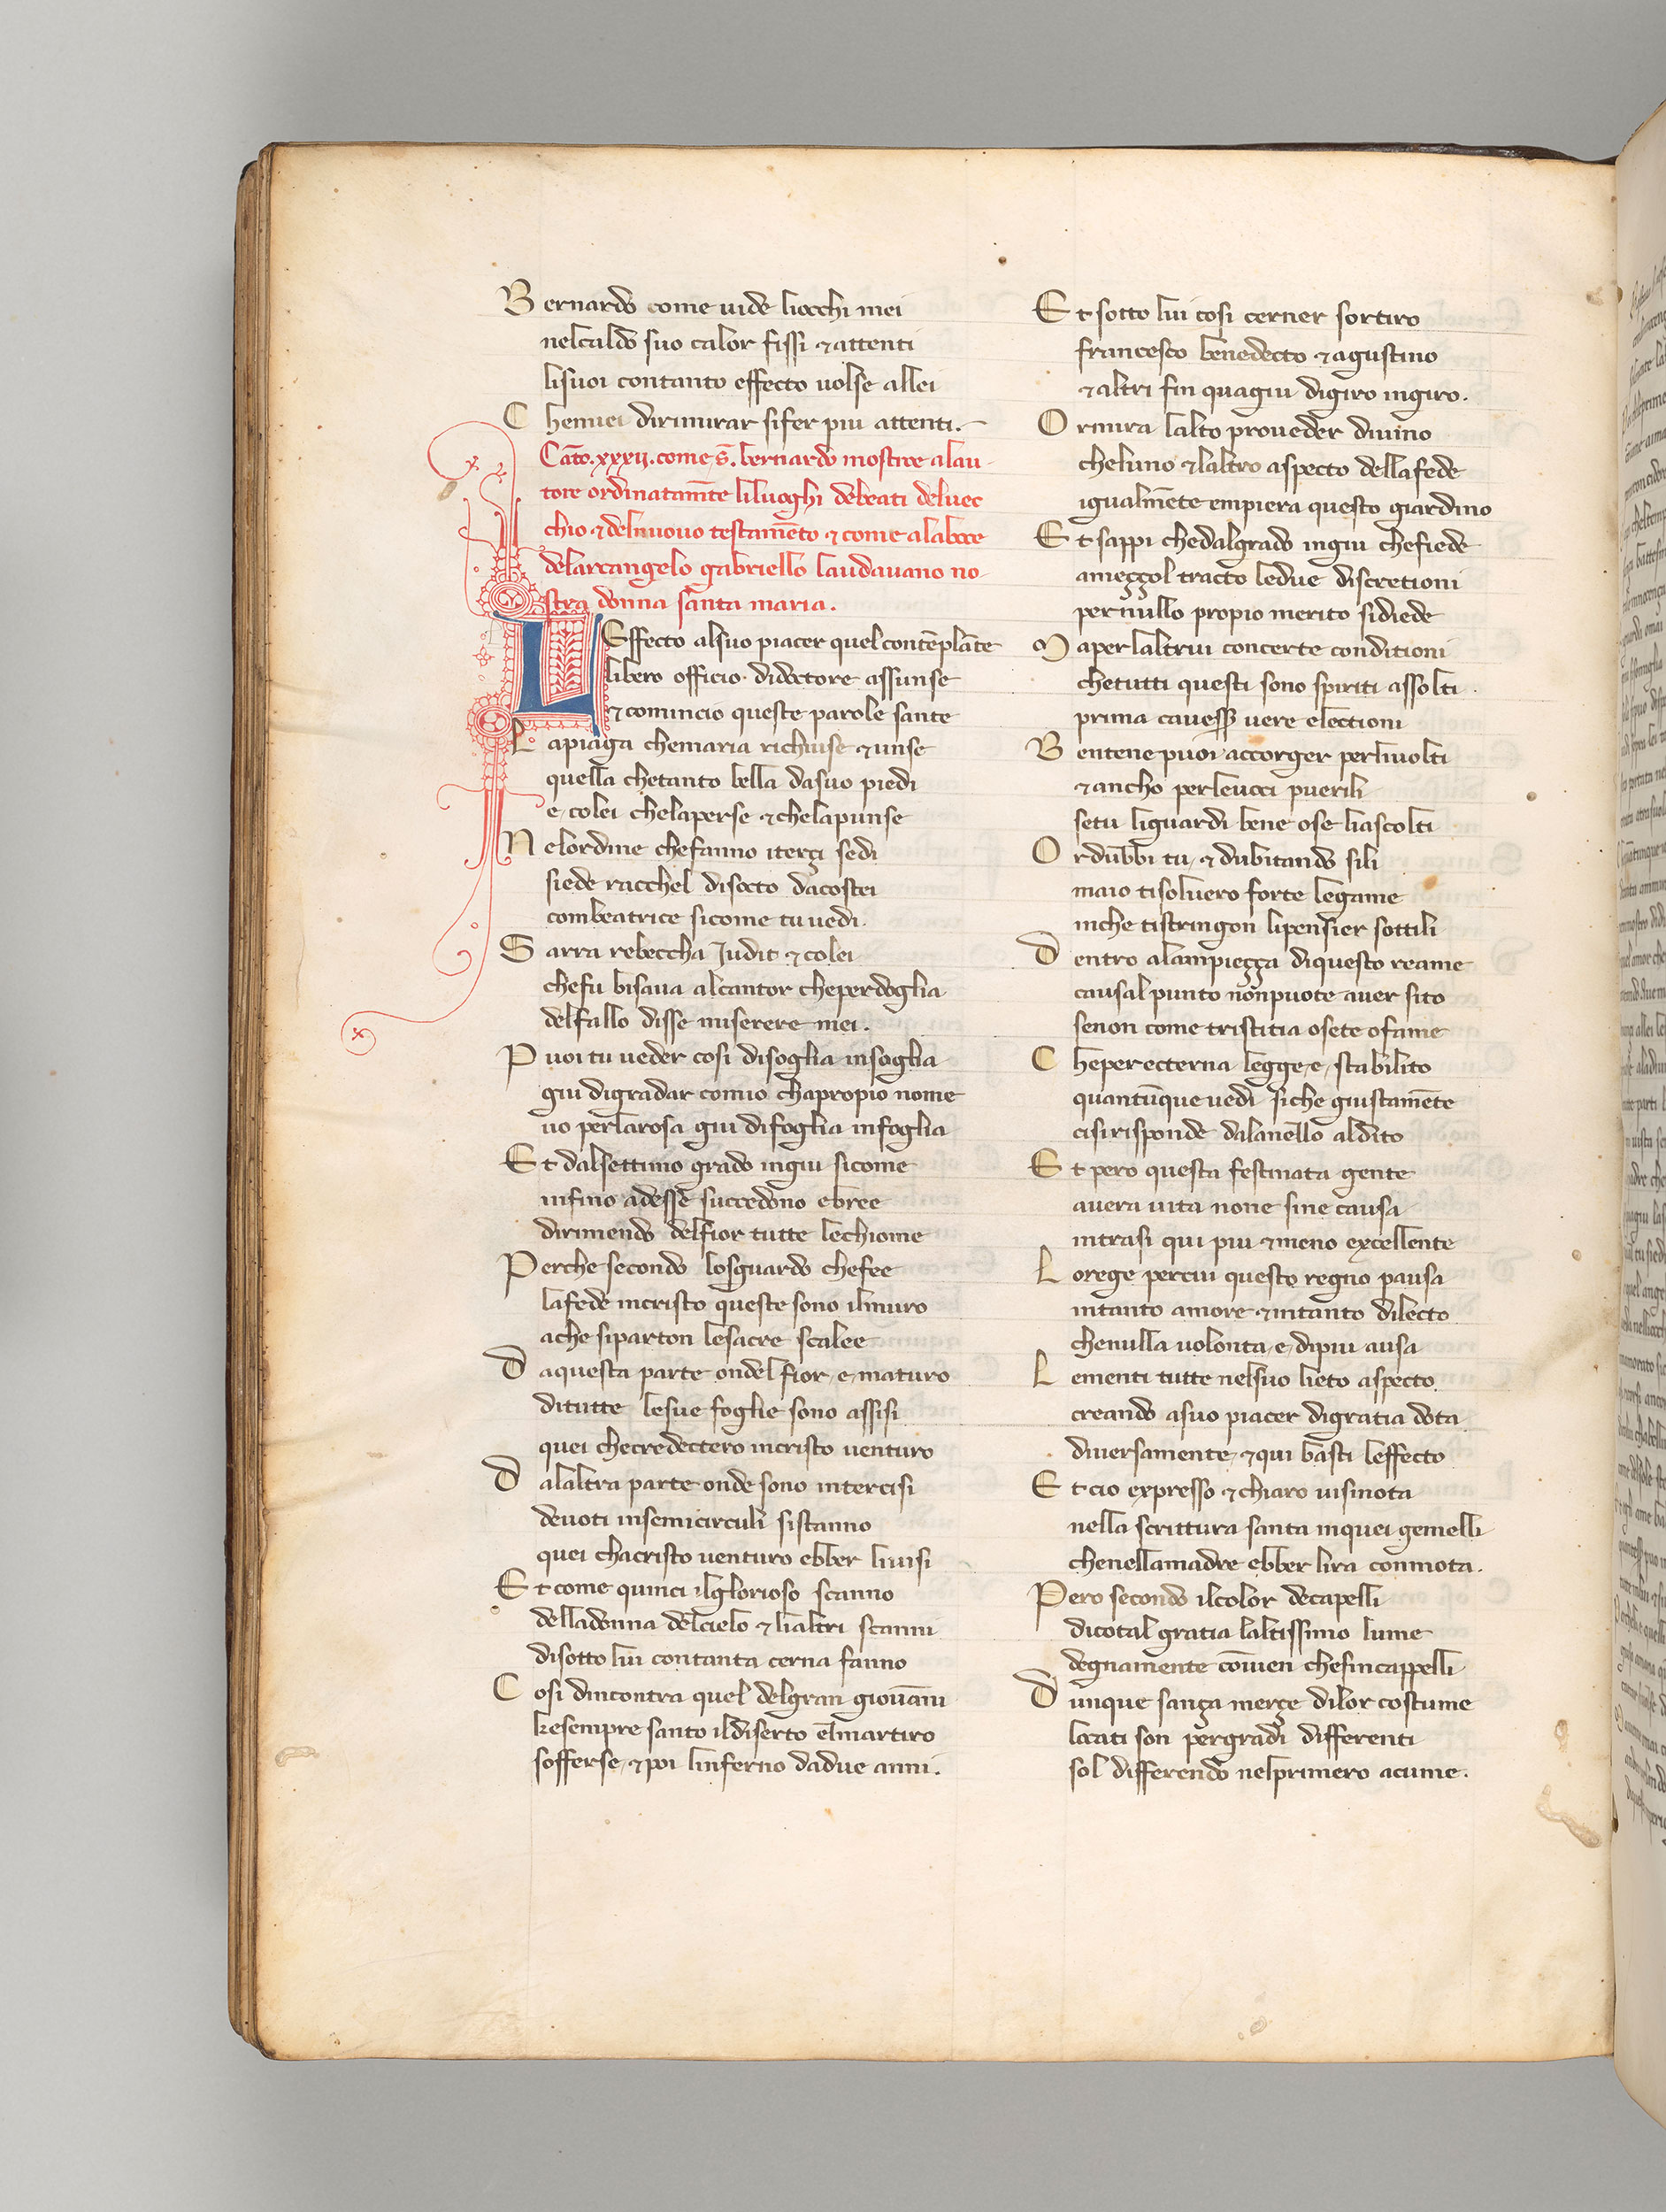 Bernardo come uide liocchi mei
nelcaldo suo calor fissi ⁊ attenti
lisuoi contanto effecto uolse allei
Chemiei dirimirar sifer piu attenti.
Cāto .xxxij. come .S. bernardo mostroe alau-
tore ordinatamēte liluoghi debeati deluec
chio ⁊ delnuouo testamēto ⁊ come alaboce
delarcangelo gabriello laudauano no-
stra donna santa maria.
LEffecto alsuo piacer quel contēplāte
libero officio didoctore assunse
⁊ comincio queste parole sante
Lapiaga chemaria richiuse ⁊ unse
quella chetanto bella dasuo piedi
e, colei chelaperse ⁊ chelapunse
Nelordine chefanno iterçi sedi
siede racchel disocto dacostei
combeatrice sicome tu uedi.
Sarra rebeccha Judit ⁊ colei
chefu bisaua alcantor cheperdoglia
delfallo disse miserere mei.
Puoi tu ueder cosi disoglia insoglia
giu digradar comio chapropio nome
uo perlarosa giu difoglia infoglia
Et dalsettimo grado ingiu sicome
infino adesse succedono ebree
dirimendo delfior tutte lechiome
Perche secondo losguardo chefee
lafede incristo queste sono ilmuro
ache siparton lesacre scalee
Daquesta parte ondel fior, e, maturo
ditutte lesue foglie sono assisi
quei checredectero incristo uenturo
Dalaltra parte onde sono intercisi
deuoti insemicirculi sistanno
quei chacristo uenturo ebber liuisi
Et come quinci ilglorioso scanno
delladonna delcielo ⁊ lialtri scanni
disotto lui contanta cerna fanno
Cosi dincontra quel delgran giouāni
kesempre santo ildiserto elmartiro
sofferse, ⁊ poi linferno dadue anni.
Et sotto lui cosi cerner sortiro
francesco benedecto ⁊ agustino
⁊ altri fin quagiu digiro ingiro.
Ormira lalto proueder diuino
cheluno ⁊ laltro aspecto dellafede
igualmēte empiera questo giardino
Et sappi chedalgrado ingiu chefiede
ameççol tracto ledue discretioni
per nullo propio merito sidiede
Maperlaltrui concerte conditioni
chetutti questi sono spiriti assolti
prima cauesser uere electioni
Bentene puoi accorger perliuolti
⁊ ancho perleuoci puerili
setu liguardi bene ose liascolti
Ordubbi tu, ⁊ dubitando sili
maio tisoluero forte legame
inche tistringon lipensier sottili
Dentro alampieçça diquesto reame
causal punto non puote auer sito
senon come tristitia osete ofame
Cheperecterna legge, e, stabilito
quantūque uedi siche giustamēte
cisirisponde dalanello aldito
Et pero questa festinata gente
auera uita none sine causa
intrasi qui piu ⁊ meno excellente
Lorege percui questo regno pausa
intanto amore ⁊ intanto dilecto
chenulla uolonta, e, dipiu ausa
Lementi tutte nelsuo lieto aspecto
creando asuo piacer digratia dota
diuersamente, ⁊ qui basti leffecto
Et cio expresso ⁊ chiaro uisinota
nella scrittura santa inquei gemelli
chenellamadre ebber lira commota.
Pero secondo ilcolor decapelli
dicotal gratia laltissimo lume
degnamente cōuien chesincappelli
Dunque sança merçe dilor costume
locati son pergradi differenti
sol differendo nelprimero acume.